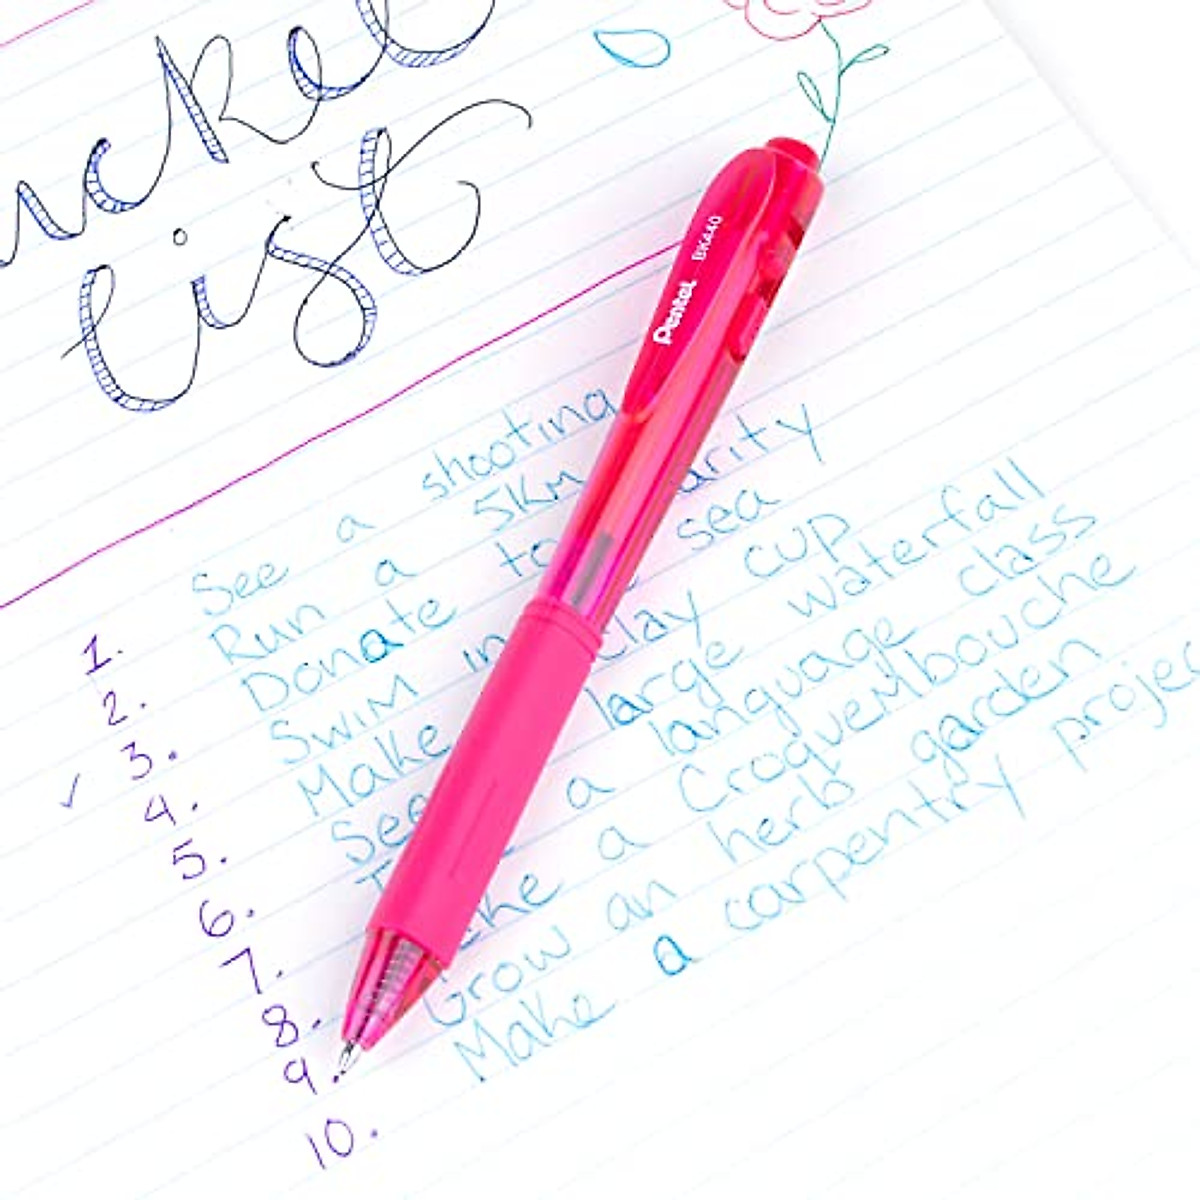 ucket
List
1. See a shooting
2. Run a 5KM
3. Donate to arity
✓ 4. Swim in sea
5. Make Clay cup
6. See large waterfall
7. a language class
8. ake a Croquembouche
9. Grow an herb garden
10. Make a carpentry projec
Pentel BK440